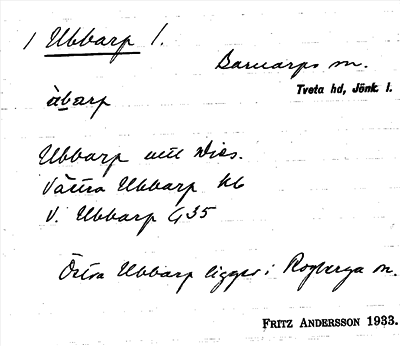 1 Ubbarp 1.
Barnarps sn.
Tveta hd, Jönk. l.
àbarp
Ubbarp
Västra Ubbarp kb
V. Ubbarp G 35
Östra Ubbarp ligger i Rogberga sn.
FRITZ ANDERSSON 1933.